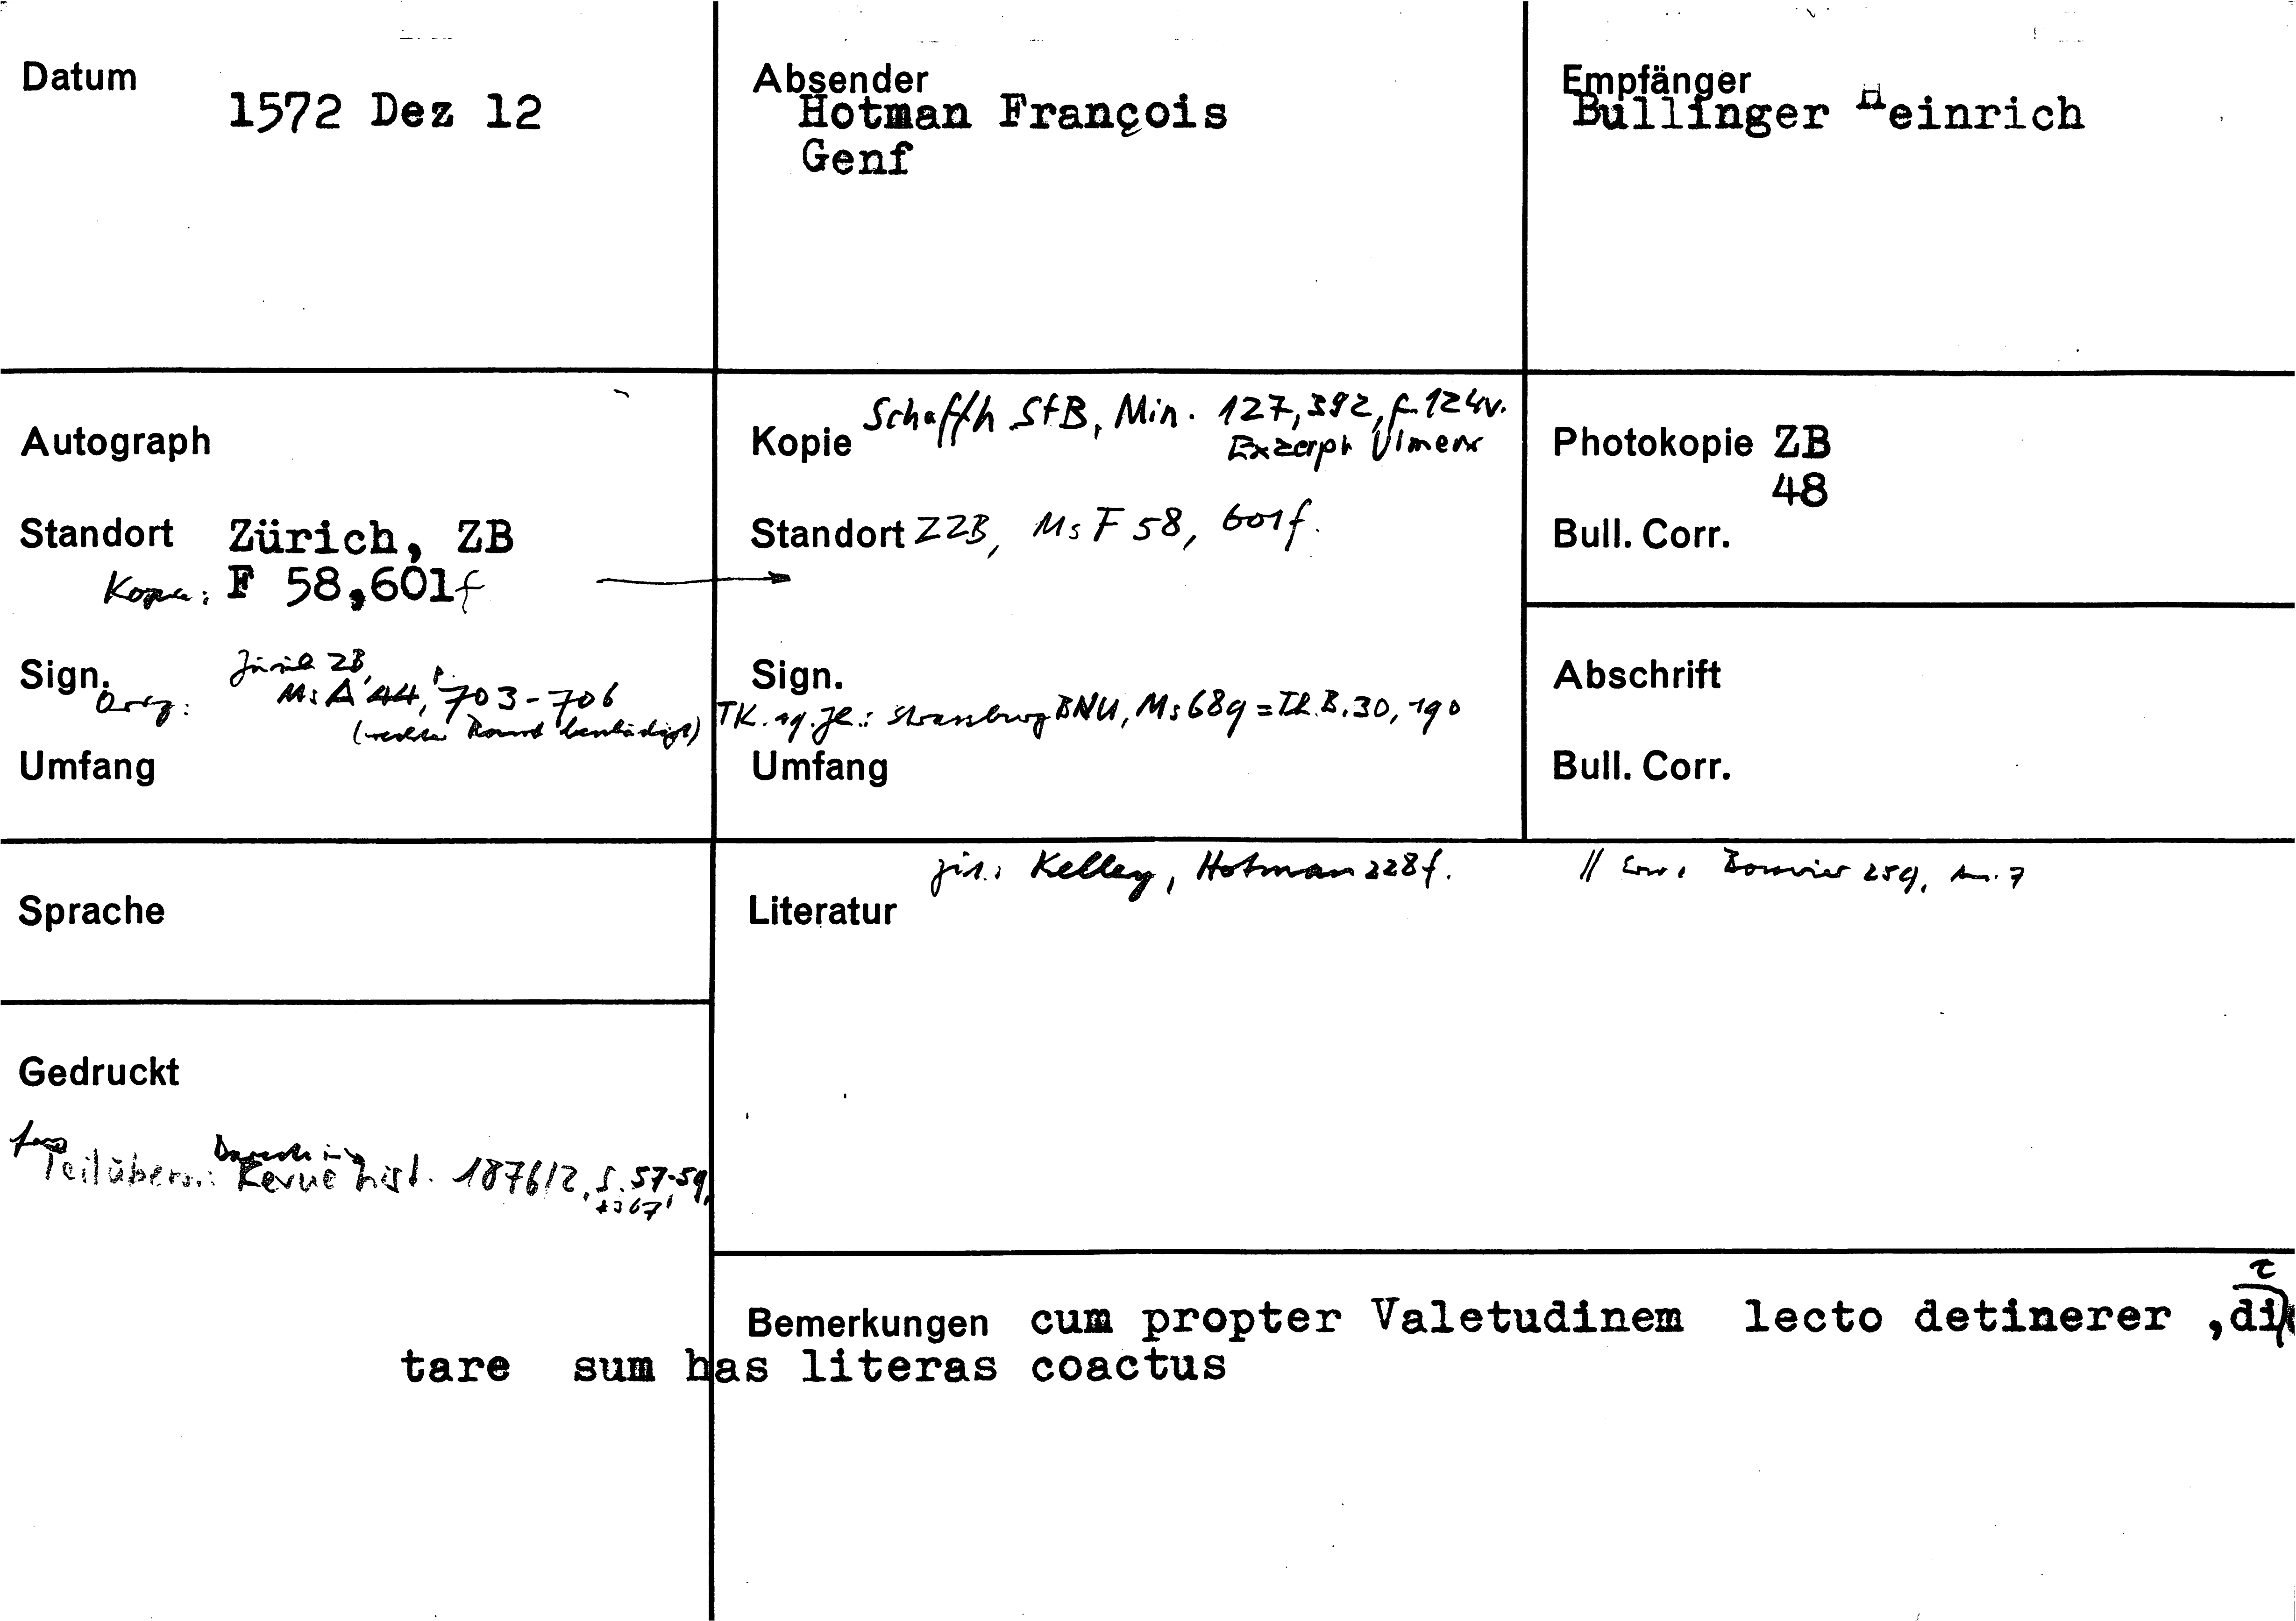 Datum
1572 Dez 12
Absender
Hotman François
Genf
Empfänger
Bullinger Heinrich
Autograph
Standort Zürich, ZB
Kopie: F 58,601f
Sign. Zürich ZB,
Orig: Ms A 44, 703-706
(rechter Rand beschädigt)
Umfang
Kopie Schaffh StB, Min. 127, 392, f. 124v.
Exzerpt Ulmers
Standort ZZB, Ms F 58, 601f.
Sign.
TK. 19. Jh.: Strassburg BNU, Ms 689 = Th. B. 30, 190
Umfang
Photokopie ZB
48
Bull. Corr.
Abschrift
Bull. Corr.
Sprache
Literatur zit.: Kelley, Hotman 228f. // Erw. 259, Anm. 7
Gedruckt
Teilübers.: Revue hist. 1876/2, S. 57-59,
Bemerkungen cum propter Valetudinem lecto detinerer ,dic
tare sum has literas coactus